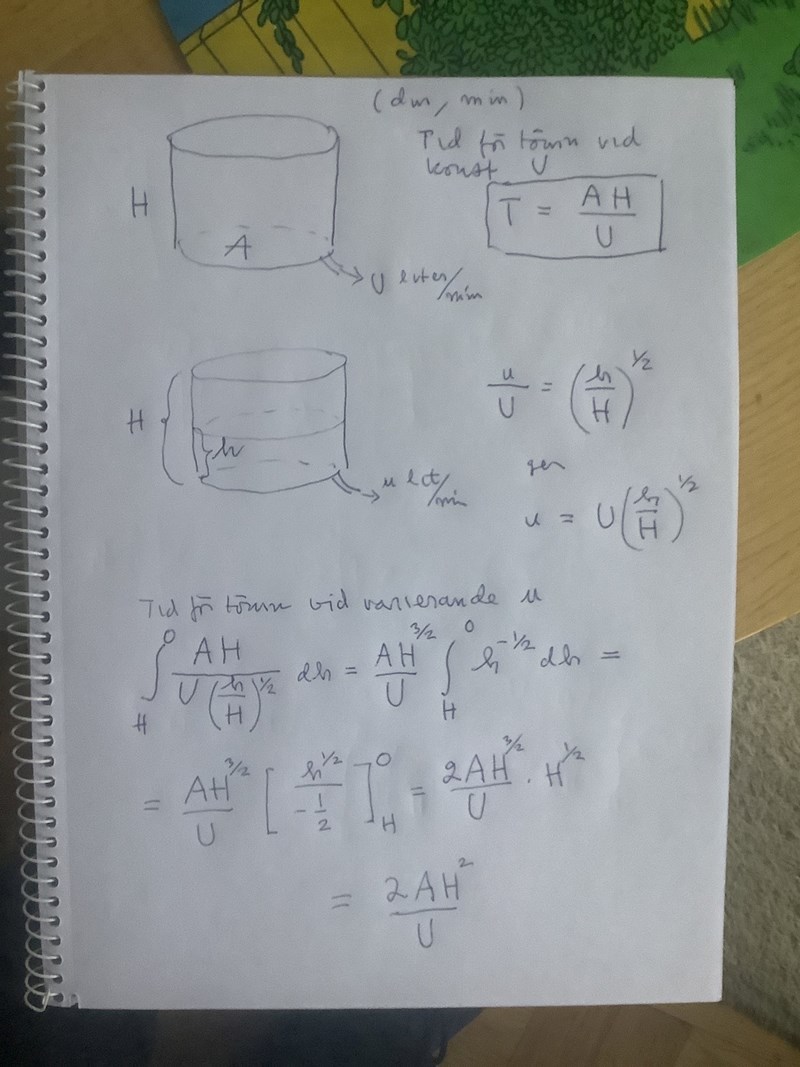 (dm, min)
Tid för tömn vid
konst U
H
T = AH/U
A
U liter/min
H
h
u/U = (h/H)^1/2
u lit/min
ger
u = U(h/H)^1/2
Tid för tömn vid varierande u
∫_H^0 AH/(U(h/H)^1/2) dh = AH^3/2/U ∫_H^0 h^-1/2 dh =
= AH^3/2/U [h^1/2/(-1/2)]_H^0 = 2AH^3/2/U · H^1/2
= 2AH^2/U